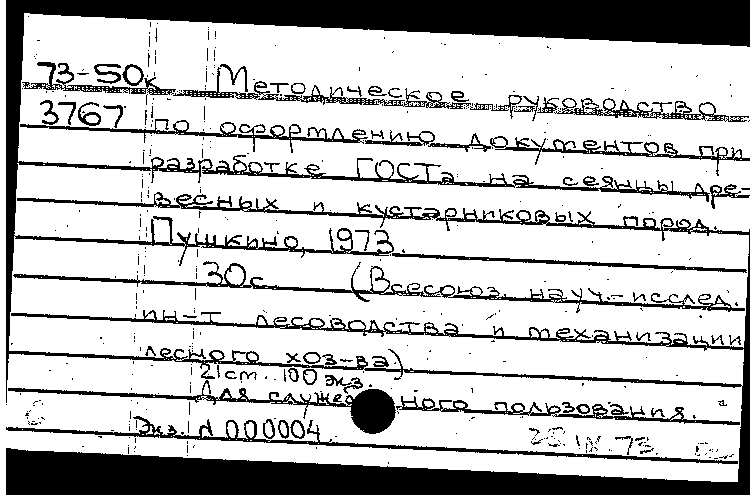 73-50к Методическое руководство
3767 по оформлению документов при
разработке ГОСТа на сеянцы дре-
весных и кустарниковых пород.
Пушкино, 1973.
30с. (Всесоюз. науч.-исслед.
ин-т лесоводства и механизации
лесного хоз-ва).
21см. 100 экз.
Для служебного пользования.
Экз. N 000004